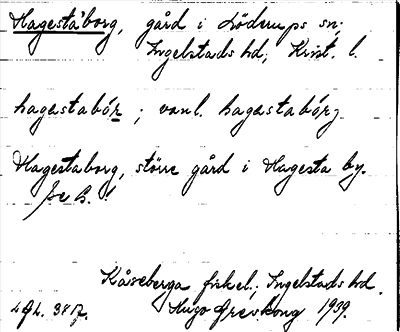 Hagestaborg, gård i Löderups sn;
Ingelstads hd; Krist. l.
hagastabór ; vanl. hagastabórj
Hagestaborg, större gård i Hagesta by.
se B. !
Kåseberga fiskel.; Ingelstads hd.
Hugo Areskoug 1939.